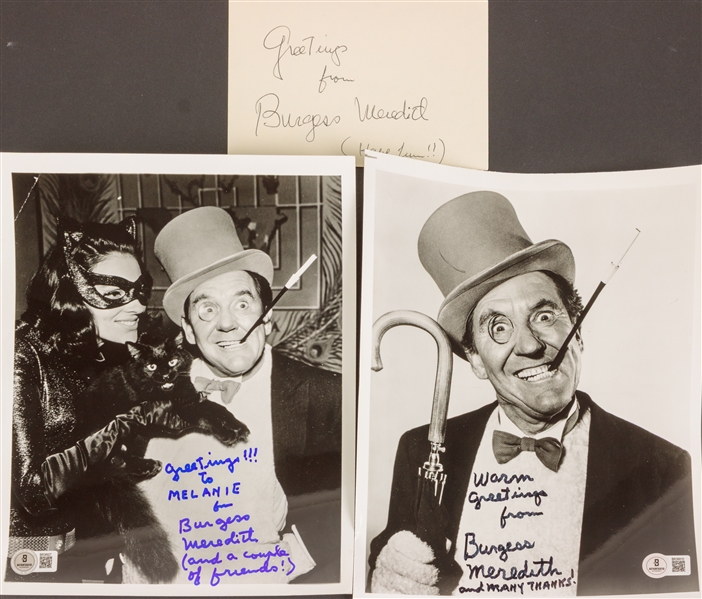 Greetings
from
Burgess Meredith
(Have fun!!)
Greetings!!!
to
MELANIE
from
Burgess
Meredith
(and a couple
of friends!)
Warm
Greetings
from
Burgess
Meredith
and MANY THANKS!